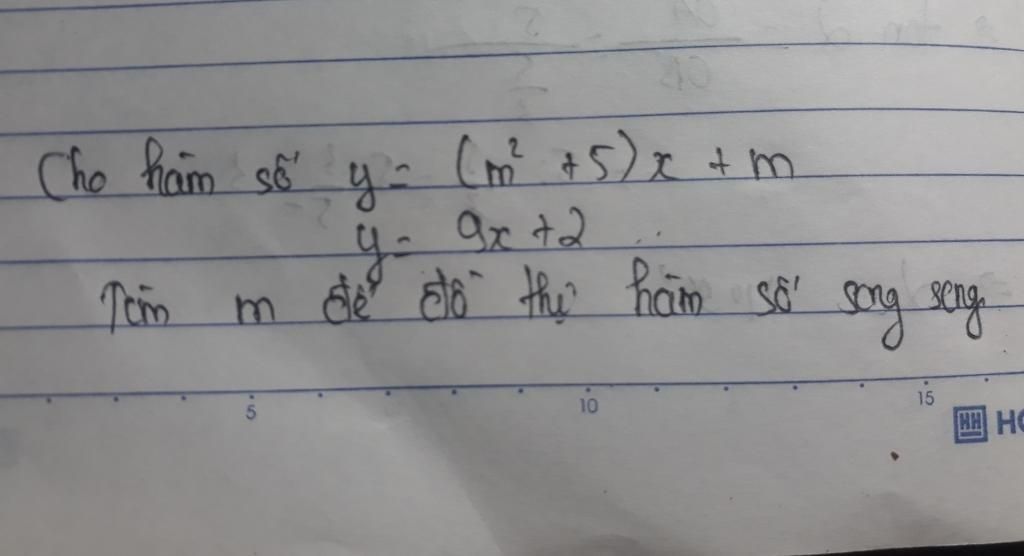 Cho hàm số y = (m² + 5)x + m
y = 9x + 2
Tìm m để đồ thị hàm số song song
5 10 15
HH HO